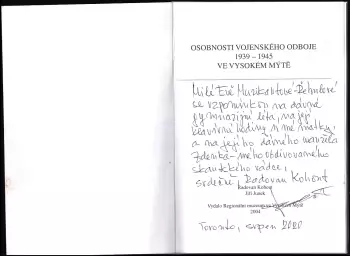 OSOBNOSTI VOJENSKÉHO ODBOJE
1939 – 1945
VE VYSOKÉM MÝTĚ
Milé Evě Muzikantové-Řehulové
se vzpomínkou na dávná
gymnazijní léta, na její
klavírní hodiny u mé matky
a na jejího dávného manžela
Zdeňka - mého obdivovaného
skautského rádce,
srdečně, Radovan Kohout
Radovan Kohout
Jiří Junek
Vydalo Regionální muzeum ve Vysokém Mýtě
2004
Toronto, srpen 2020